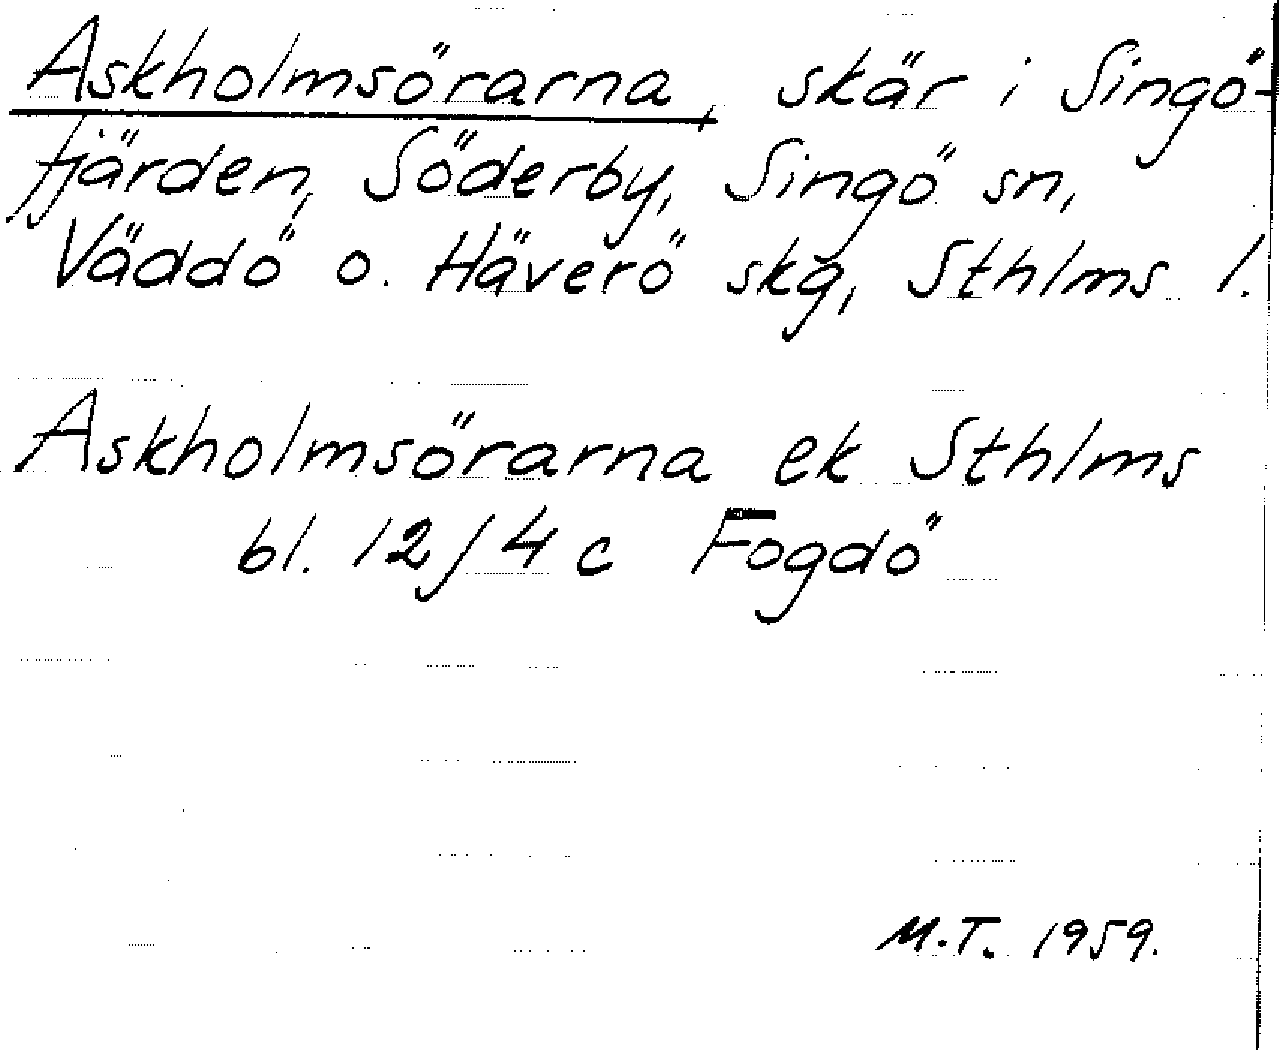 Askholmsörarna, skär i Singö-
fjärden, Söderby, Singö sn,
Väddö o. Häverö skg, Sthlms l.
Askholmsörarna ek Sthlms
bl. 12/4c Fogdö
M.T. 1959.